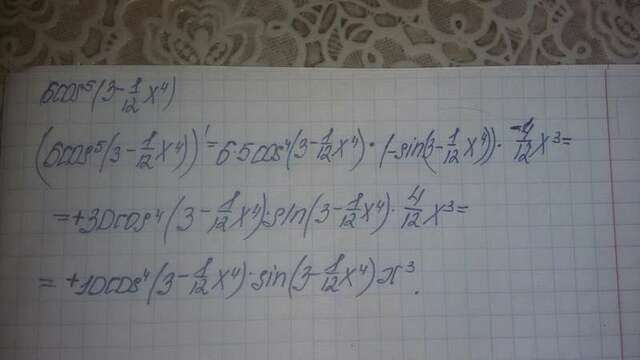 6cos⁵(3-1/12x⁴)
(6cos⁵(3-1/12x⁴))'=6·5cos⁴(3-1/12x⁴)·(-sin(3-1/12x⁴))·-4/12x³=
=+30cos⁴(3-1/12x⁴)·sin(3-1/12x⁴)·4/12x³=
=+10cos⁴(3-1/12x⁴)·sin(3-1/12x⁴)x³.